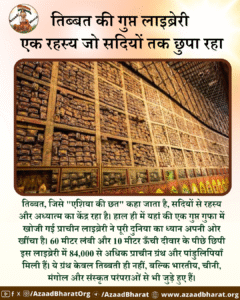 तिब्बत की गुप्त लाइब्रेरी
एक रहस्य जो सदियों तक छुपा रहा
तिब्बत, जिसे "एशिया की छत" कहा जाता है, सदियों से रहस्य
और अध्यात्म का केंद्र रहा है। हाल ही में यहां की एक गुप्त गुफा में
खोजी गई प्राचीन लाइब्रेरी ने पूरी दुनिया का ध्यान अपनी ओर
खींचा है। 60 मीटर लंबी और 10 मीटर ऊँची दीवार के पीछे छिपी
इस लाइब्रेरी में 84,000 से अधिक प्राचीन ग्रंथ और पांडुलिपियाँ
मिली हैं। ये ग्रंथ केवल तिब्बती ही नहीं, बल्कि भारतीय, चीनी,
मंगोल और संस्कृत परंपराओं से भी जुड़े हुए हैं।
/AzaadBharatOrg /AzaadBharat.Org www.azaadbharat.org